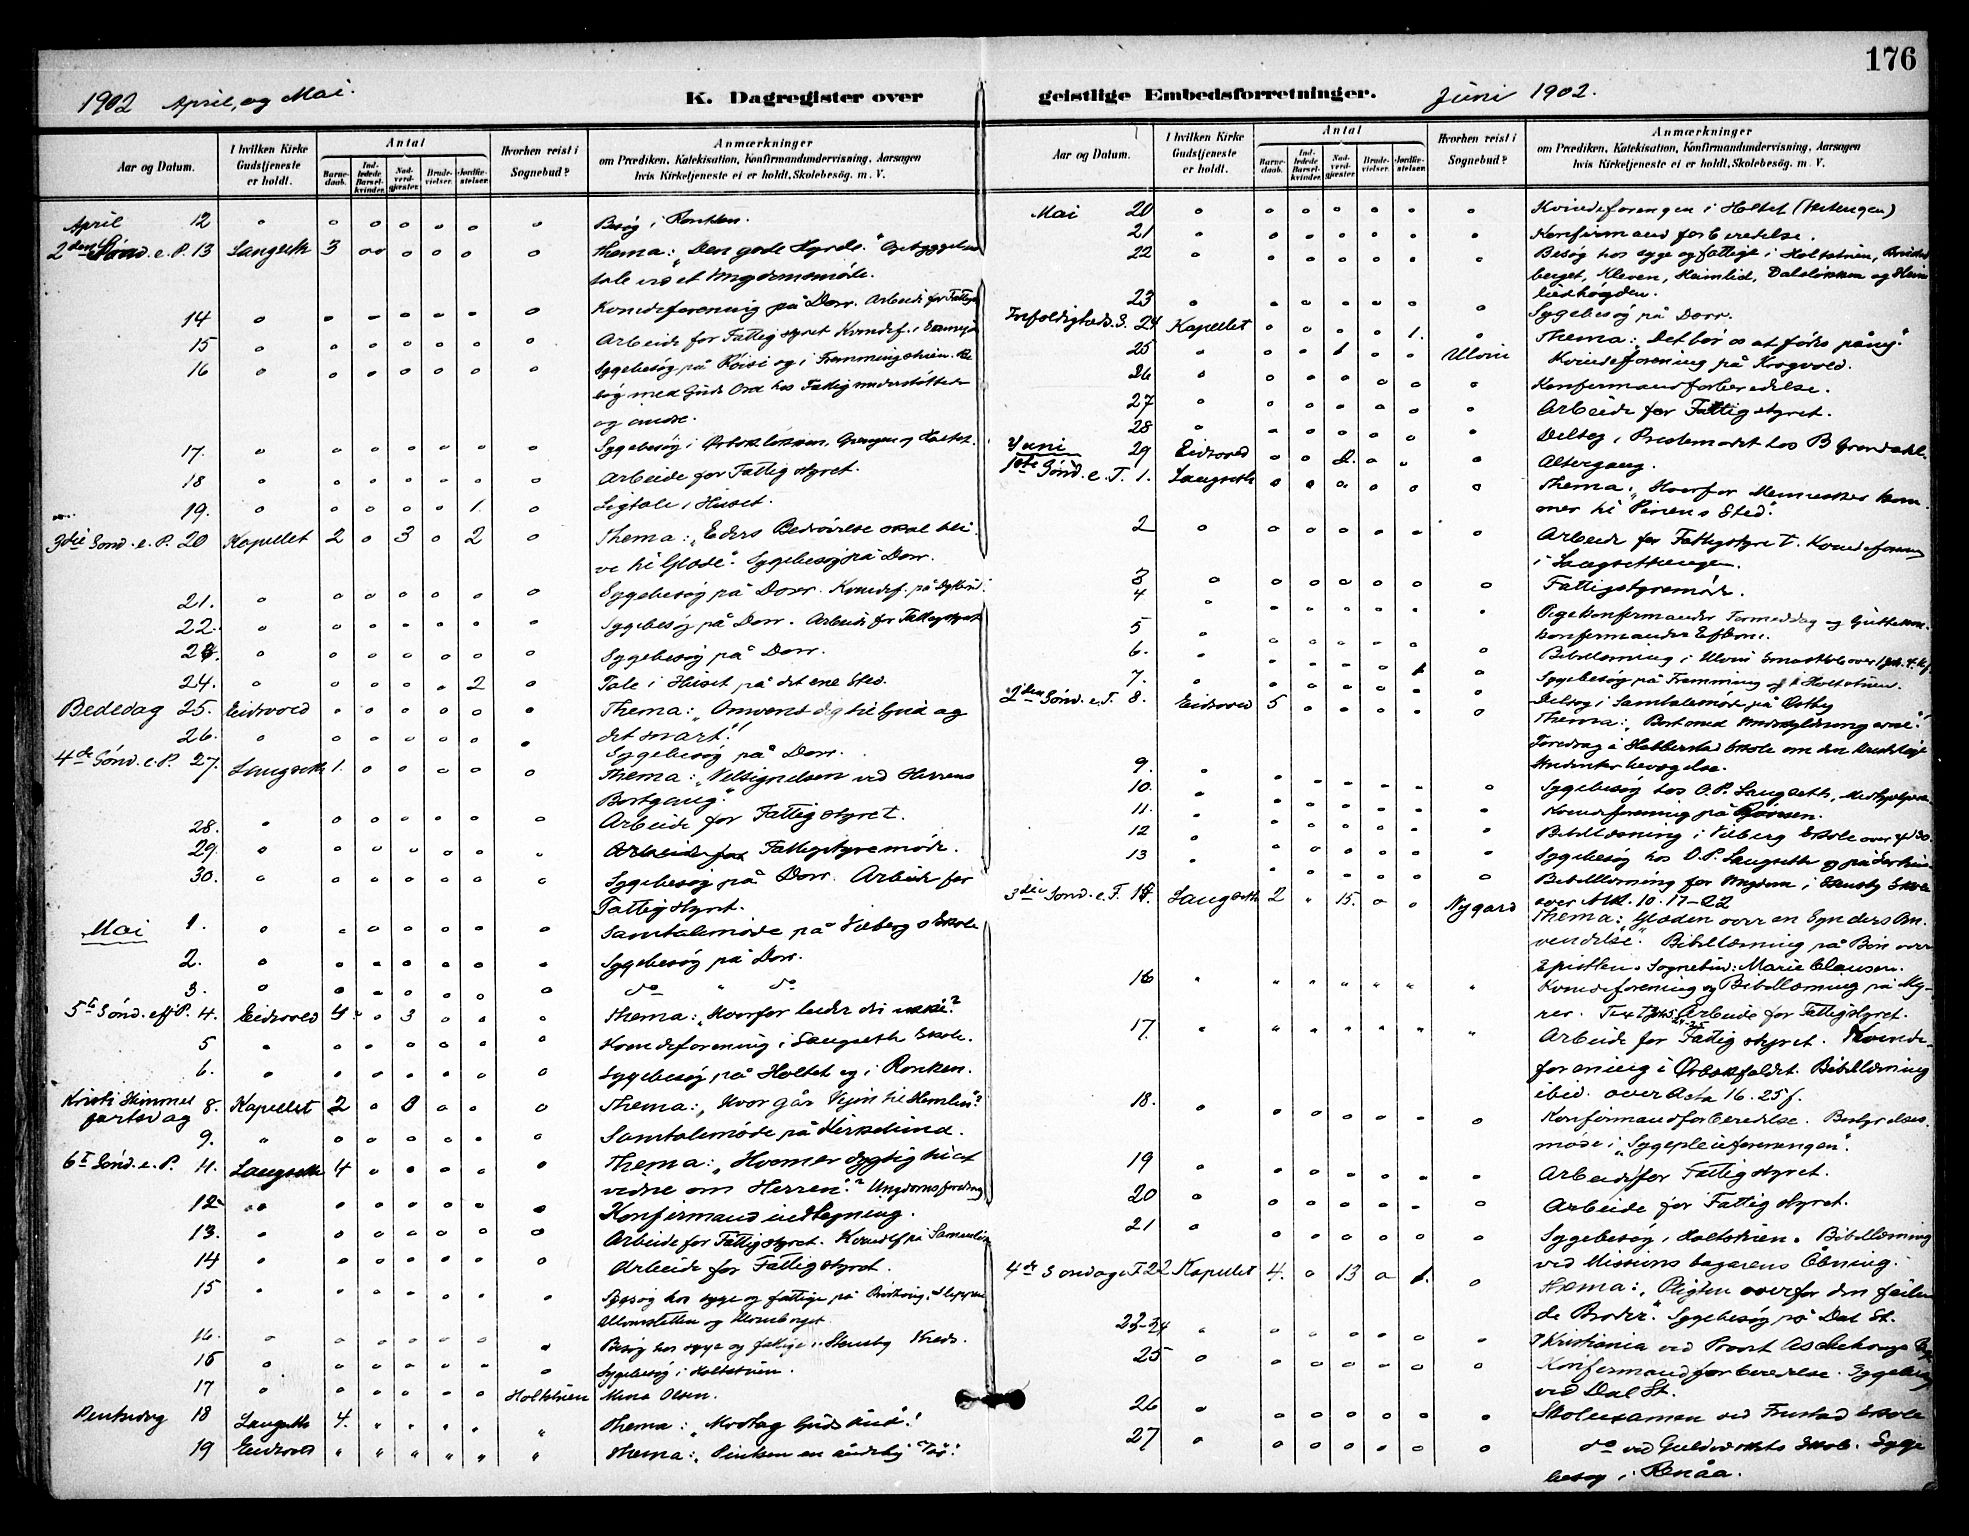 176
1902 April, og Mai.
K. Dagregister over
geistlige Embedsforretninger.
Juni 1902.
Aar og Datum.
I hvilken Kirke Gudstjeneste er holdt.
Antal
Barnedaab.
Indledede Barselkvinder.
Nadverdgjæster.
Brudevielser.
Jordfæstelser.
Hvorhen reist i Sognebud?
Anmærkninger
om Prædiken, Katekisation, Konfirmandundervisning, Aarsagen
hvis Kirketjeneste ei er holdt, Skolebesøg. m. V.
April 12 " o o o o o o Besøg i Ronken.
2den Sønd. e. P. 13 Langseth 3 o o o o o o Thema: "Den gode Hyrde."
tale ved et Ungdomsmøde.
14 o o o o o o o Kvindeforening på Dorr. Arbeide for Fattigst.
15 o o o o o o o Arbeide for Fattigstyret Kvindef. i
16 o o o o o o o Sygebesøg på og i Fremmingstrien. Be
søg med Guds Ord hos Fattigunderstøttede
og andre.
17. o o o o o o o Sygebesøg i og Holtet.
18 o o o o o o o Arbeide for Fattigstyret.
19. o o o o o 1. o Ligtale i Huset.
3die Sønd. e. P. 20 Kapellet 2 o 3 o 2 o Thema: "Eders Bedrøvelse skal bli
ve til Glæde". Sygebesøg på Dorr.
21. o o o o o o o Sygebesøg på Dorr. Kvindef. på
22. o o o o o o o Sygebesøg på Dorr. Arbeide for Fattigstyret
o o o o o o o Sygebesøg på Dorr.
24. o o o o o 2 o Tale i Huset på det ene Sted.
Bededag 25. Eidsvold o o o o o o Thema: "Omvend dig til Gud og
det snart!"
26. o o o o o o o Sygebesøg på Dorr.
4de Sønd. e. P. 27. Langseth 1. o o o o o Thema: "Velsignelsen ved Herrens
Bortgang."
28. o o o o o o o Arbeide for Fattigstyret.
29. o o o o o o o Arbeide for Fattigstyremøde.
30. o o o o o o o Sygebesøg på Dorr. Arbeide for
Fattigstyret.
Mai 1. o o o o o o o Samtalemøde på Vilberg Skole
2. o o o o o o o Sygebesøg på Dorr.
3. o o o o o o o do " do
5te Sønd. eft P. 4. Eidsvold 4 o 3 o o o Thema: "Hvorfor beder du ikke?"
5 o o o o o o o Kvindeforening i Langseth Skole.
6. o o o o o o o Sygebesøg på Holtet og i Ronken.
Kristi Himmel
fartsdag 8. Kapellet 2 o 8 o o o Thema: "Hvor går Vejen til Himlen?"
9. o o o o o o o Samtalemøde på
6te Sønd. e. P. 11. Langseth 4 o o o o o Thema: "Hvem er dygtig til at
vidne om Herren?" Ungdomsforedrag
12 o o o o o o o Konfirmandindtegning.
13. o o o o o o o Arbeide for Fattigstyret. Kvindef på
14 o o o o o o o Arbeide for Fattigstyret.
15 o o o o o o o Besøg hos syge og fattige på
og
16. o o o o o o o Besøg hos syge og fattige i Stensby Kreds.
16 o o o o o o o Sygebesøg i Holtstrien.
17 o o o o o o Holtstrien Mina Olsen.
Pintsedag 18 Langseth 4. " " " " " Thema: "Modtag Guds Ånd!"
19 Eidsvold " " " " " " Thema: "Pinsen en åndelig
Aar og Datum.
I hvilken Kirke Gudstjeneste er holdt.
Antal
Barnedaab.
Indledede Barselkvinder.
Nadverdgjæster.
Brudevielser.
Jordfæstelser.
Hvorhen reist i Sognebud?
Anmærkninger
om Prædiken, Katekisation, Konfirmandundervisning, Aarsagen
hvis Kirketjeneste ei er holdt, Skolebesøg. m. V.
Mai 20 o o o o o o o Kvindeforengen i Holtet
21 o o o o o o o Konfirmandforberedelse.
22 o o o o o o o Besøg hos syge og fattige i Holtstrien,
berget, Kleven, Heimlid, Dalsløkken og
23 o o o o o o o Sygebesøg på Dorr.
Trefoldigheds S. Kapellet o o o o 1. o Thema: "Det bør os at fødes påny."
25 o o o 1 o o Ulvin Kvindeforening på Krogvold.
26 o o o o o o o Konfirmandforberedelse.
27 o o o o o o o Arbeide for Fattigstyret.
28 o o o o o o o Deltog i Prestemødet hos B Grøndahl.
29 Eidsvold o o 2. o o o Altergang.
Juni
1ste Sønd. e. T. 1. Langseth o o o o o o Thema: "Hvorfor Mennesker kom
mer til Pinens Sted".
2 o o o o o o o Arbeide for Fattigstyret. Kvindeforening
i Langsethengen.
3 o o o o o o o Fattigstyremøde.
4 o o o o o o o Pigekonfirmander Formiddag og Gutte
konfirmander Efterm.
5 o o o o o o o Bibellæsning i Ulvin Småskole over
6. o o o o o 1 o Sygebesøg på Fremming og i Holtstrien.
7. o o o o o o o Deltog i Samtalemøde på
2den Sønd. e. T. 8. Eidsvold 5 o o o o o Thema: "Bort med Undskyldningerne!"
Foredrag i Habberstad Skole om den kristelige
Studenterbevægelse.
9. o o o o o o o Sygebesøg hos O. P. Langseth,
10. o o o o o o o Kvindeforening på
11. o o o o o o o Bibellæsning i Vilberg Skole over
12 o o o o o o o Sygebesøg hos O. P. Langseth og på
13 o o o o o o o Bibellæsning for Ungdom i Stensby Skole
over Mk. 10. 17-22
3die Sønd. e. T. Langseth 2 " 15. o o Nygard Thema: "Glæden over en Synders Om
vendelse". Bibellæsning på Bøn over
Epistlen. Sognebud: Marie Clausen.
16 o " " " " " " Kvindeforening og Bibellæsning på My-
rer. Arbeide for Fattigstyret.
17. " " " " " " " Arbeide for Fattigstyret. Kvinde-
forening i Bibellæsning
ibid. over Acta 16. 25 f.
18. o o o o o o o Konfirmandforberedelse. Bestyrelses
møde i "Sygepleieforeningen".
19 o o o o o o o Arbeide for Fattigstyret.
20 o o o o o o o Arbeide for Fattigstyret.
21 o o o o o o o Sygebesøg i Holtstrien. Bibellæsning
ved Missionsbazarens Åbning.
4de Søndag e T. 22 Kapellet 4. o 13 o 1. o Thema: "Pligten overfor den feilen
de Broder". Sygebesøg på Dal St.
23-24 " o o o o o o I Kristiania ved Provst
25 o o o o o o o Konfirmandforberedelse. Sygebesøg
ved Dal St.
26 o o o o o o o Skoleexamen ved Skole
27 o o o o o o o do ved Guldverkets Skole. Syge
besøg i Renåa.